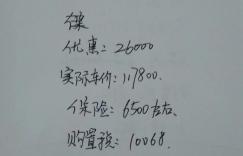 优惠：26000
实际车价：117800.
保险：6500左右.
购置税：10068.